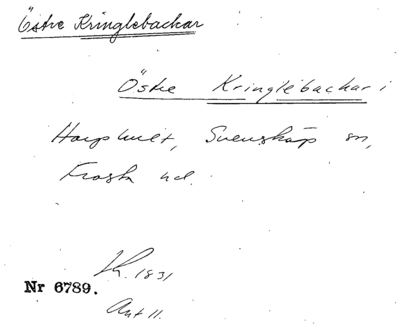 Östre Kringlebackar
Östre Kringlebackar i
Harphult, Svensköp sn,
Frosta hd.
K. 1831
Nr 6789.
Akt 11.